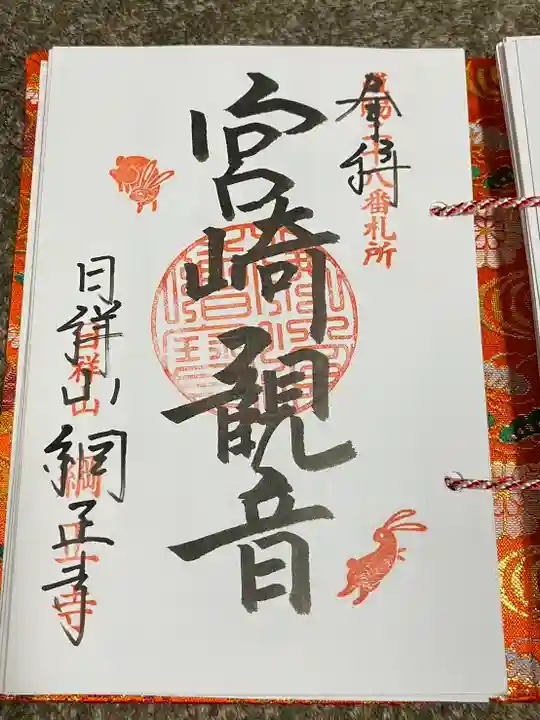 奉拝
二十八番札所
宮崎観音
日祥山 綱正寺
日祥山 綱正寺